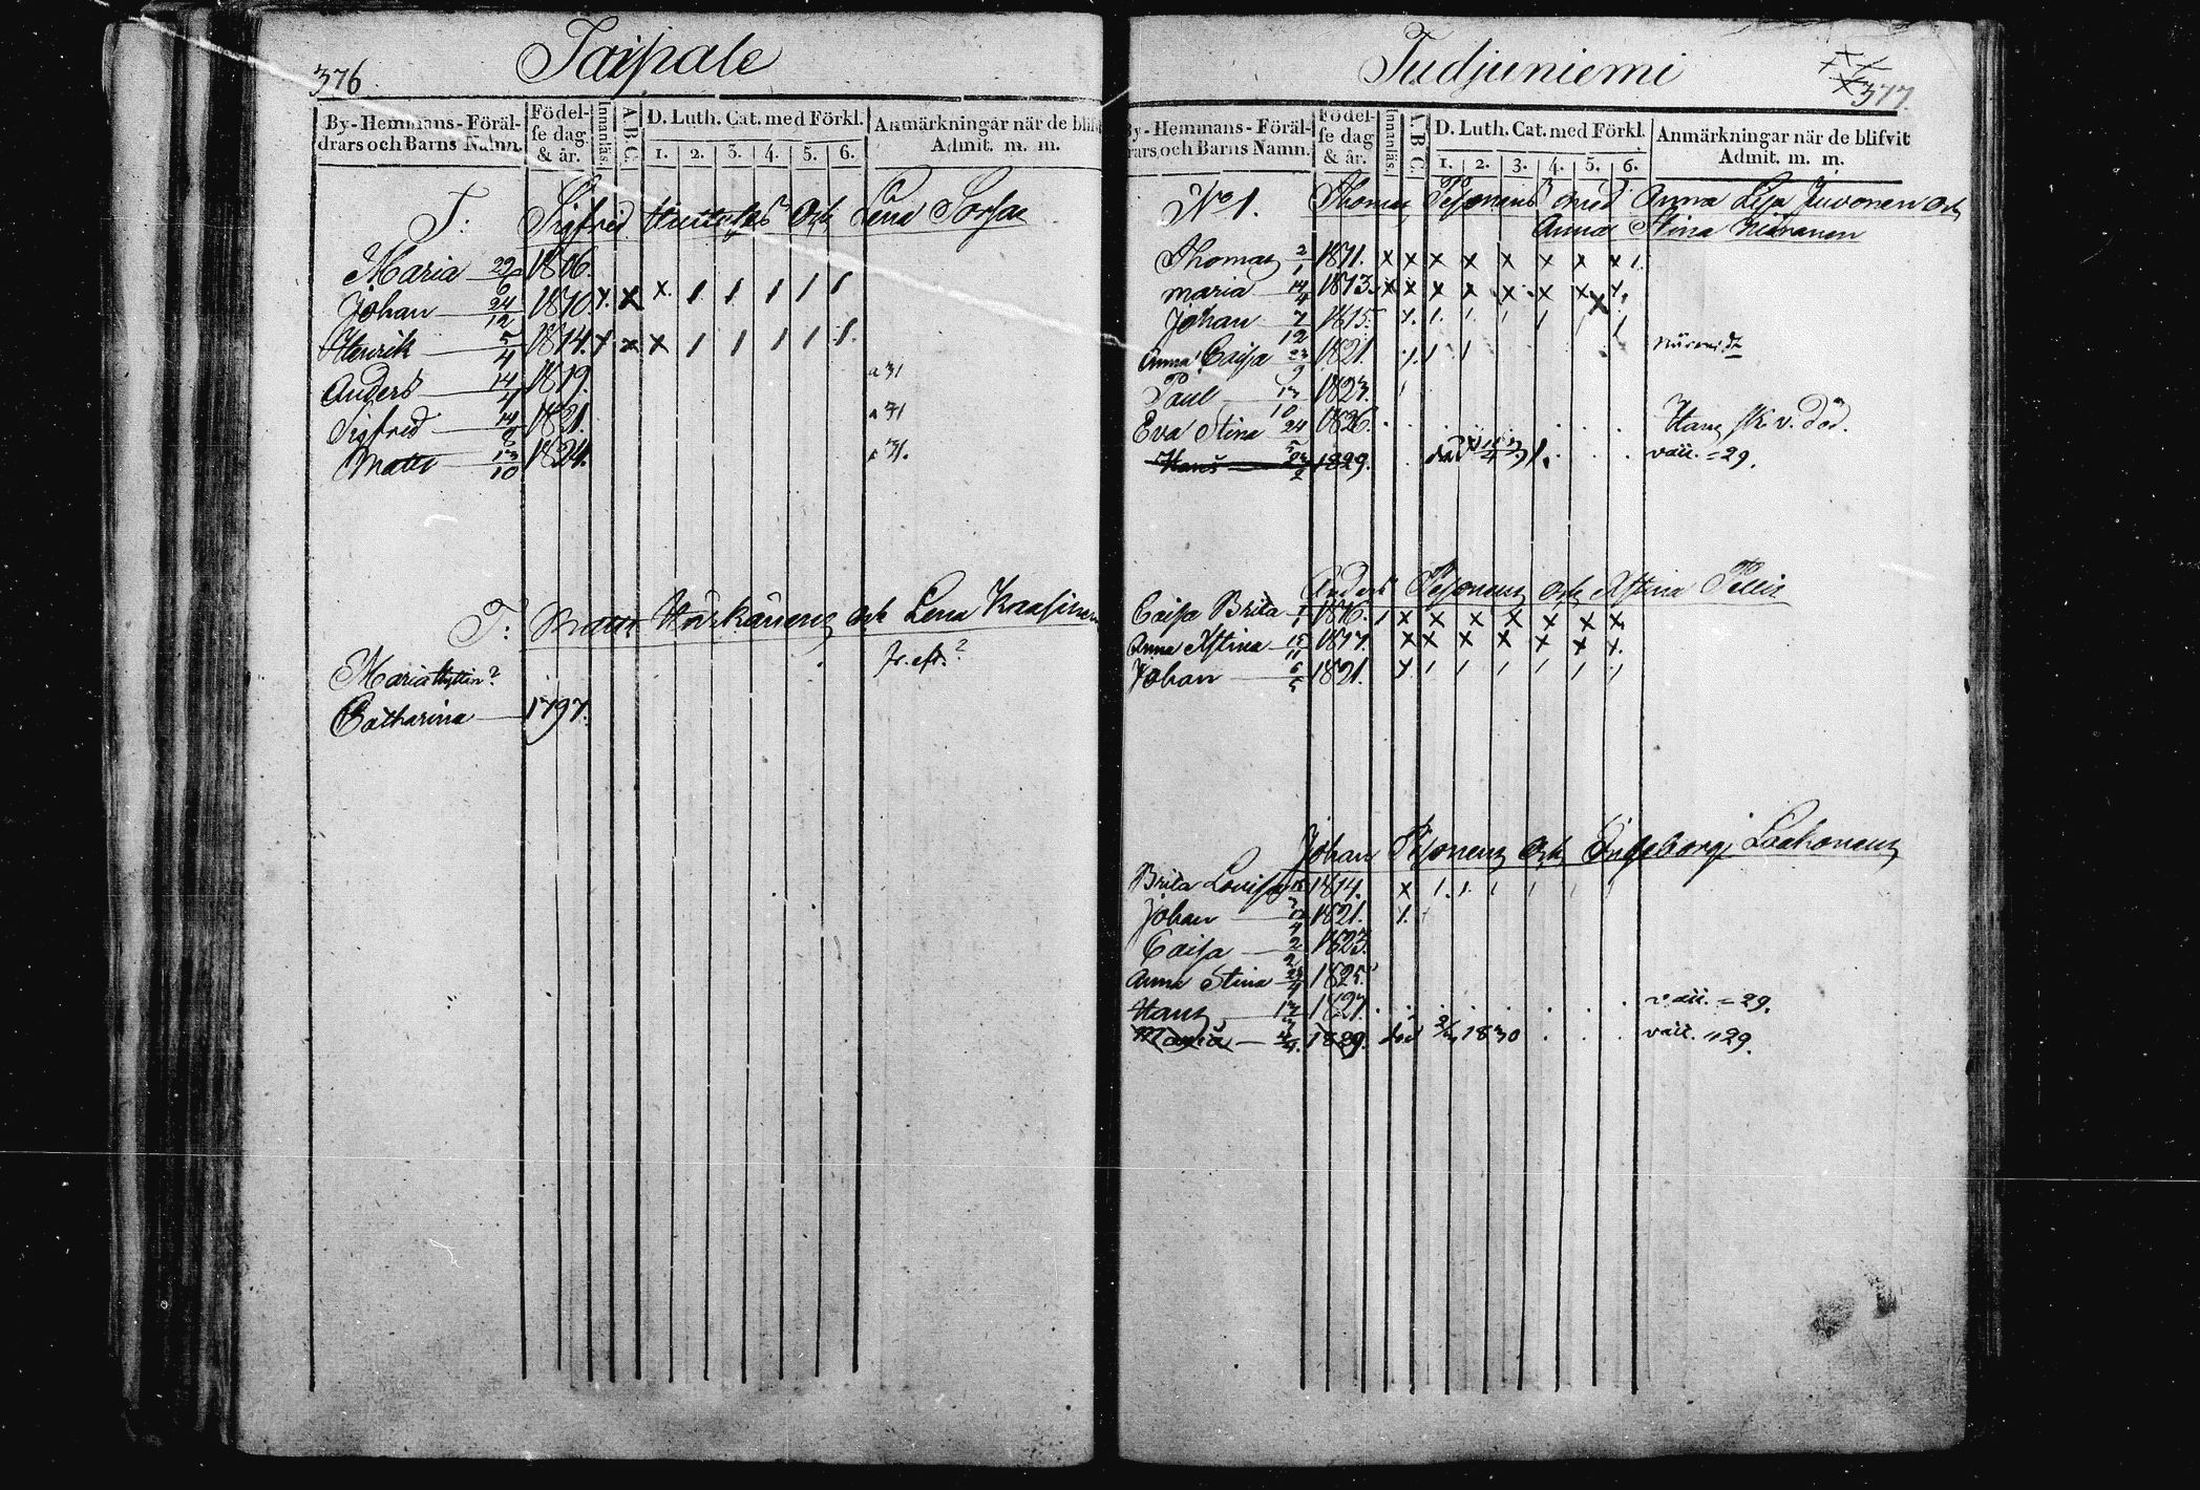 376
Taipale
By-Hemmans-Föräl-
drars och Barns Namn.
Födel-
se dag
& år.
Innanläs.
A. B. C.
D. Luth. Cat. med Förkl.
1. 2. 3. 4. 5. 6.
Anmärkningar när de blif
Admit. m. m.
T: Sigfrid och Lena
Maria 22/6 1806.
Johan 24/12 1810. x. x x. 1 1 1 1 1
Henrik 5/4 1814. x x x 1 1 1 1 1.
Anders 14/4 1819. a 31
Sigfred 14/8 1821. a 31
Matts 13/10 1824. a 31.
T: Matts och Lena
Maria Hyttin? fr. efr.?
Catharina 1797.
Tudjuniemi
377
By-Hemmans-Föräl-
drars och Barns Namn.
Födel-
se dag
& år.
Innanläs.
A. B. C.
D. Luth. Cat. med Förkl.
1. 2. 3. 4. 5. 6.
Anmärkningar när de blifvit
Admit. m. m.
No 1. Thomas Pesonens med Anna Lisa Juvonen och
Anna Stina
Thomas 2/1 1811. x x x x x x x x 1.
Maria 14/4 1813. x x x x x x x x.
Johan 7/12 1815. x. 1. 1 1 1 1
Anna Caisa 23/9 1821. x 1 1
Paul 13/10 1823. 1
Eva Stina 24/5 1826. Hans sk. v. död.
Hans 1829. död 31. vacc. =29.
Anders Pesonens och Kstina Pellis
Caisa Brita 1/1 1816. 1 x x x x x x x.
Anna Kstina 15/11 1817. x x x x x x x.
Johan 6/5 1821. x 1 1 1 1 1 1
Johan Pesonens och Ingeborg Laakonens
Brita Lovisa 1814. x 1. 1. 1 1 1 1
Johan 1821. x.
Caisa 2/2 1823.
Anna Stina 1825.
Hans 1827. vacc. =29.
Maria 1829. död 1830 vacc. "29.